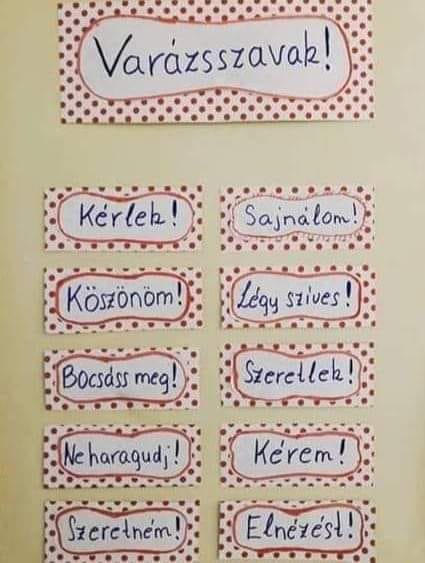 Varázsszavak!
Kérlek!
Sajnálom!
Köszönöm!
Légy szives!
Bocsáss meg!
Szeretlek!
Ne haragudj!
Kérem!
Szeretném!
Elnézést!